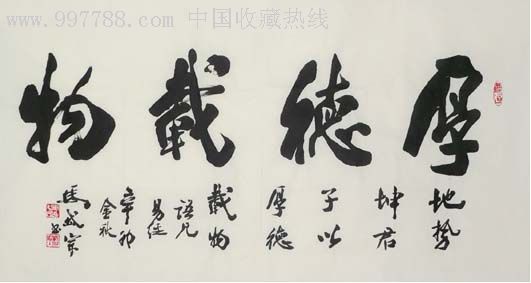 www.997788.com 中国收藏热线
厚德載物
地势
坤君
子以
厚德
載物
語见
易经
辛卯
金秋
馬
书